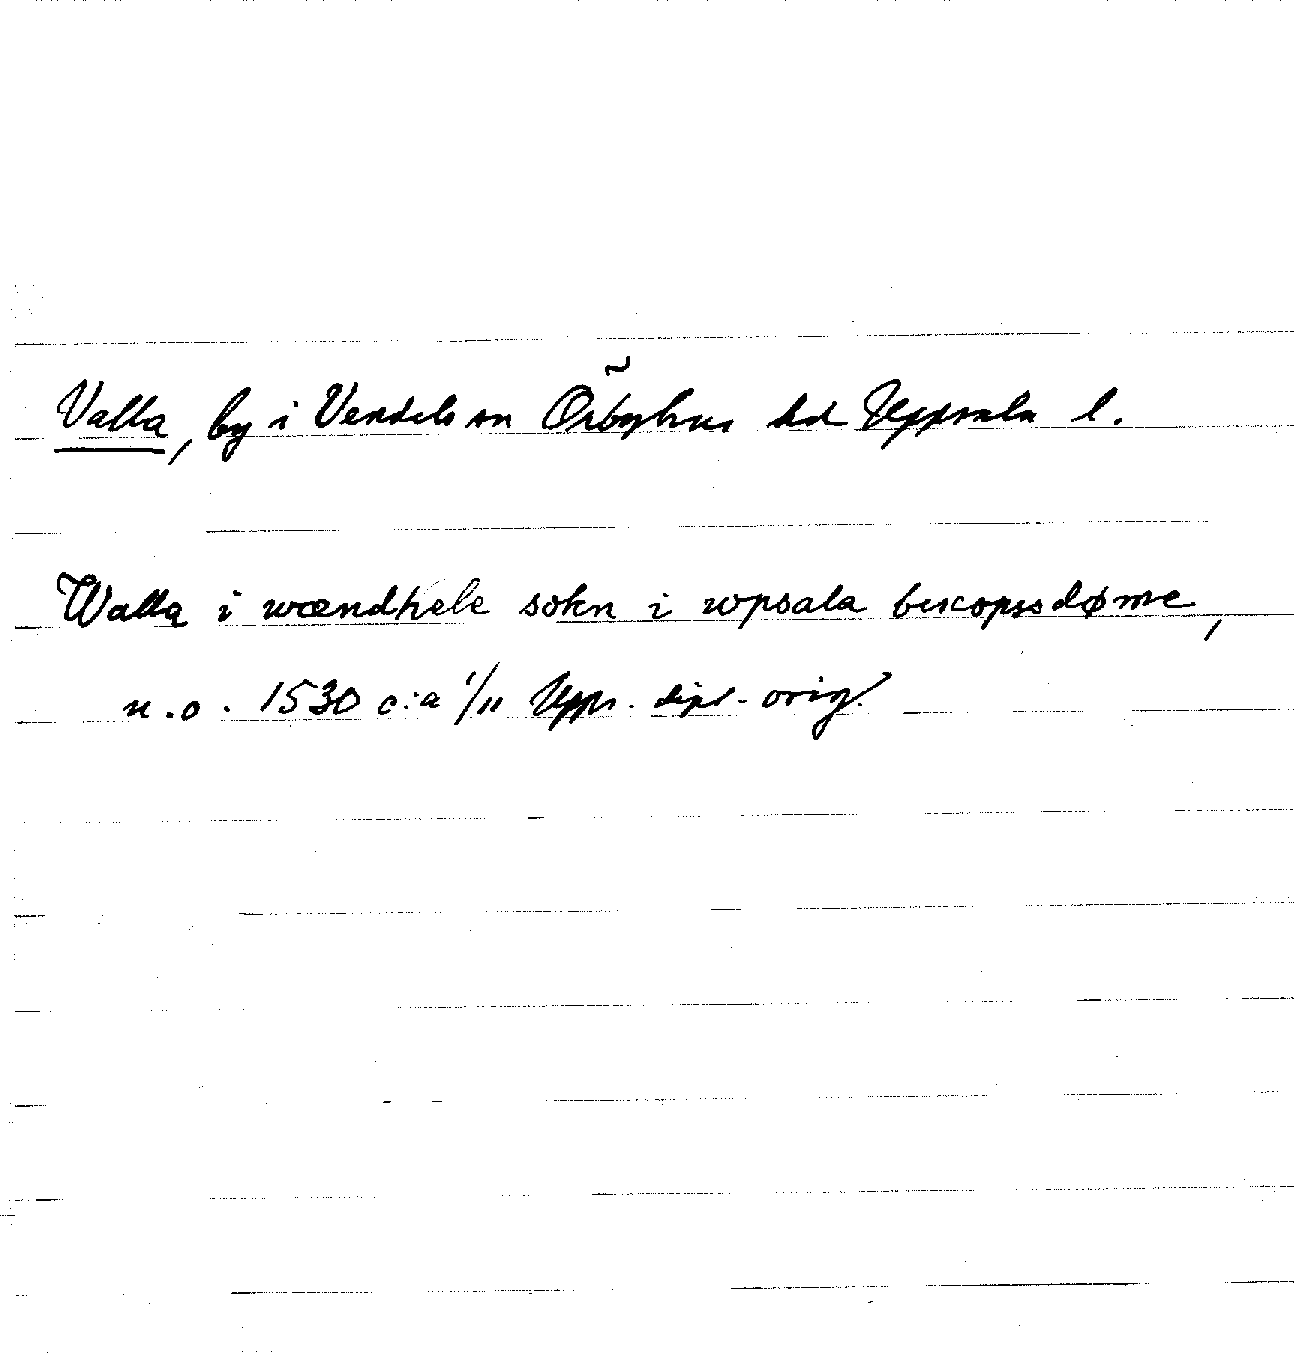 Valla, by i Vendels sn Örbyhus hd Uppsala l.
Walla i wændhele sokn i wpsala biscopssdøme,
u.o. 1530 c:a 1/11 Upps. dipl. orig.